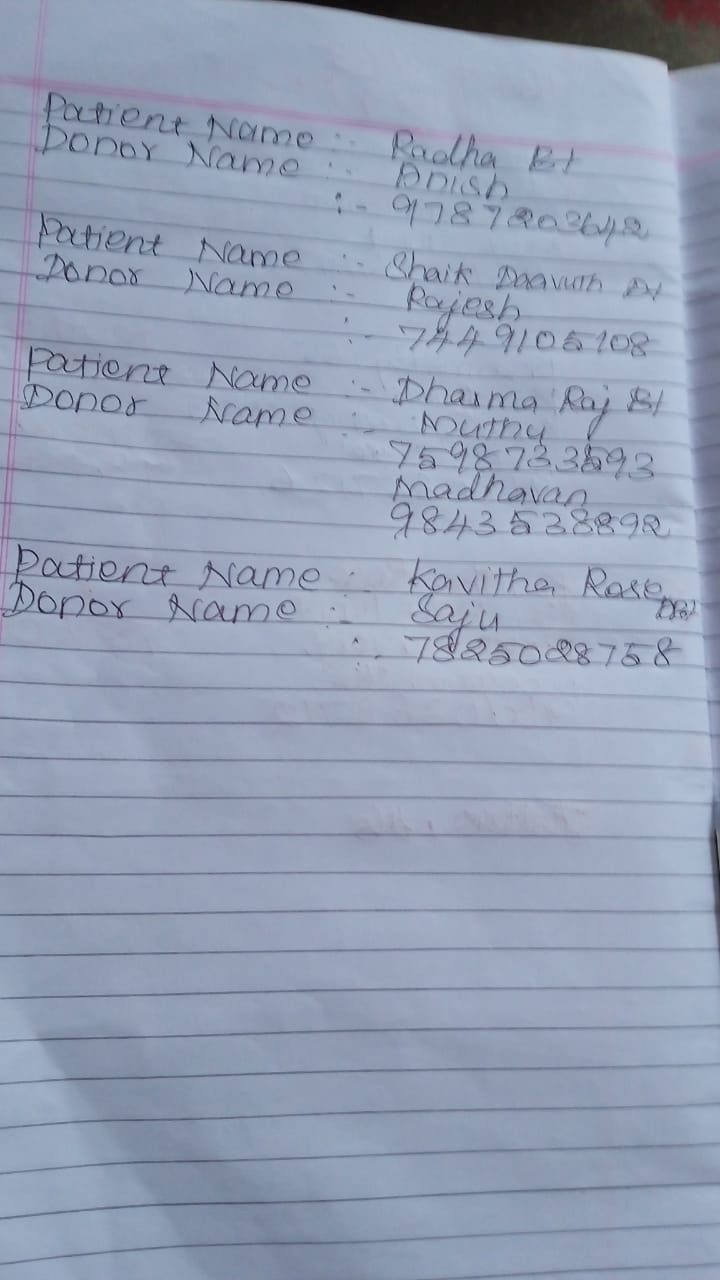 Patient Name :- Radha B+
Donor Name :- Anish
:- 9787203642
Patient Name :- Shaik Daavuth A+
Donor Name :- Rajesh
:- 7449105108
Patient Name :- Dharma Raj B+
Donor Name :- Muthu
7598733593
Madhavan
9843538892
Patient Name : Kavitha Rose
Donor Name :- Saju
:- 7825028758